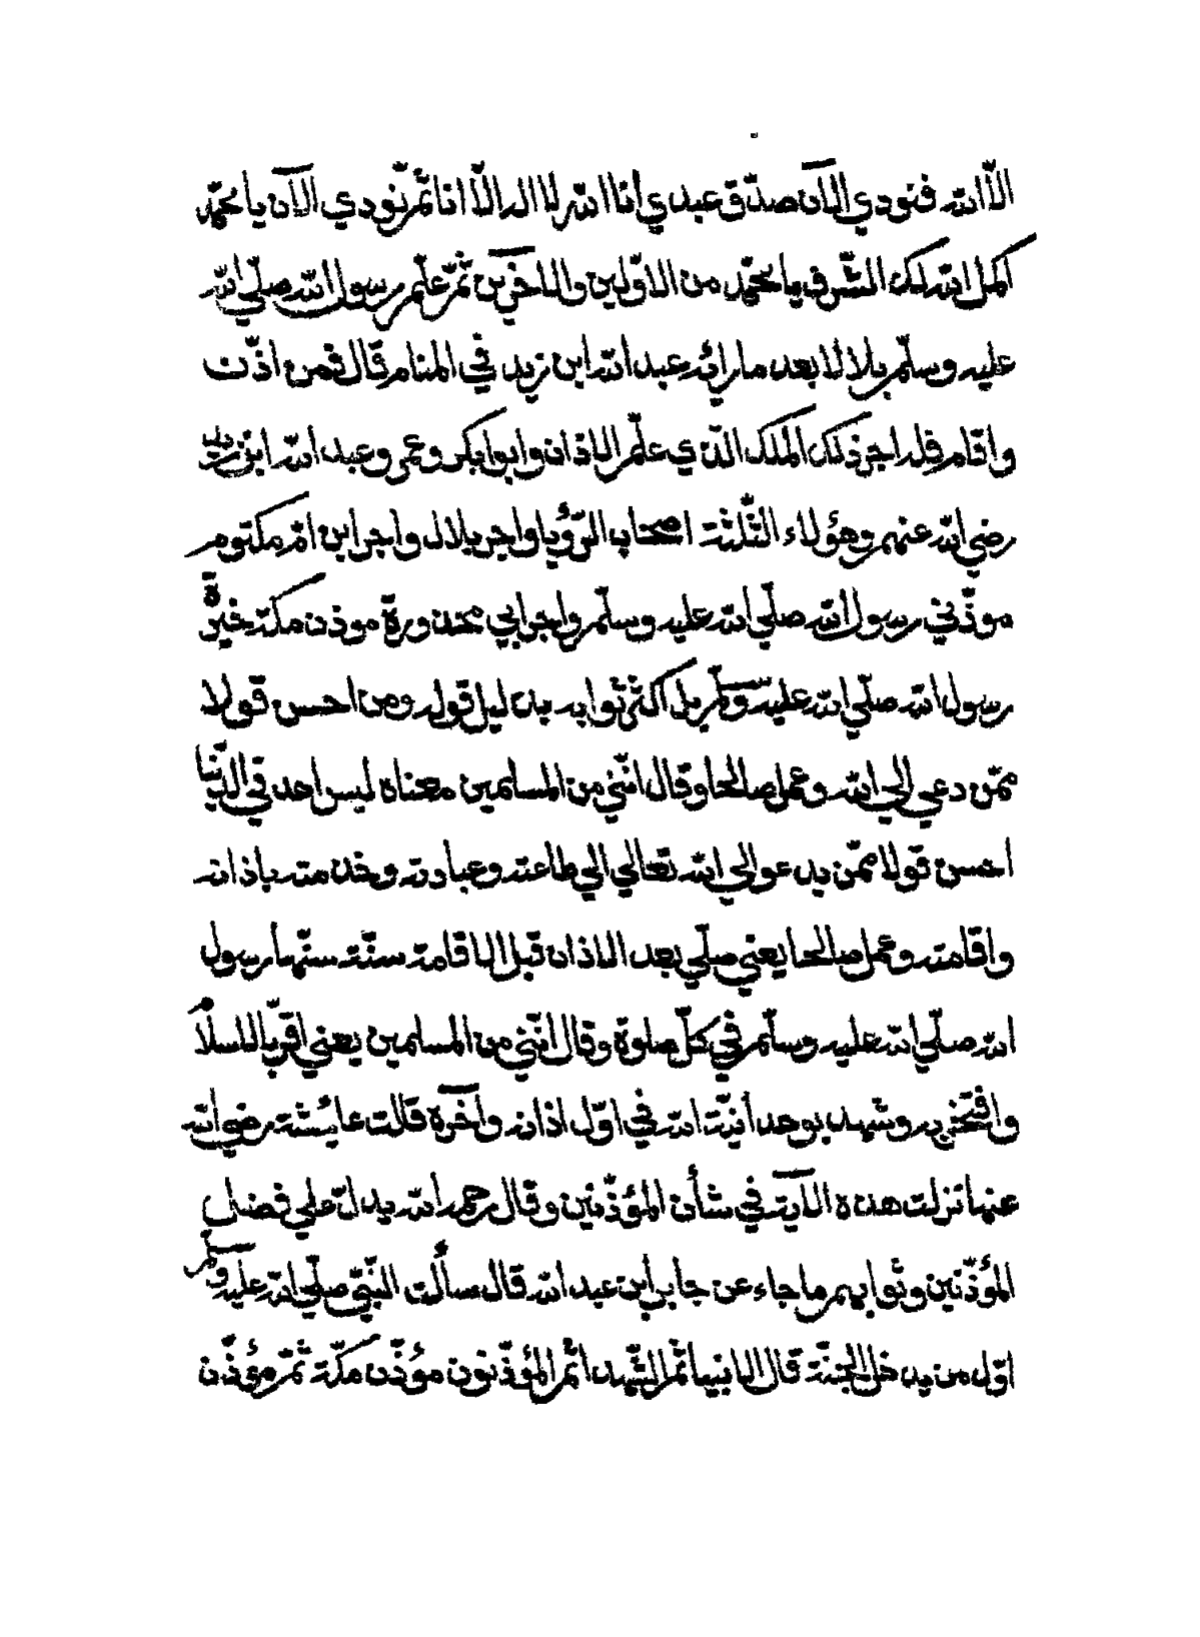 الّا الله فنودي الآن صدّق عبدي انا الله لا اله الّا انا ثمّ نودي الآن يا محمّد
اكمل الله لك الشّرف يا محمّد من الاوّلين والآخرين ثمّ علّم رسول الله صلّي الله
عليه وسلّم بلالا بعد ما رائه عبد الله ابن زيد في المنام قال فمن اذّن
واقام فله اجر ذلك الملك الّذي علّم الاذان وابوابكر وعمر وعبد الله ابن زيد
رضي الله عنهم وهؤلاء الثّلثة اصحاب الرّؤيا واجر بلال واجر ابن امّ مكتوم
موذّني رسول الله صلّي الله عليه وسلّم واجر ابي محذورة موذن مكة خيرة
رسول الله صلّي الله عليه وسلّم بل اكثر ثوابه بدليل قوله ومن احسن قولا
ممّن دعي الي الله وعمل صالحا وقال انّني من المسلمين معناه ليس احد في الدّنيا
احسن قولا ممّن يدعوالي الله تعالي الي طاعته وعبادته وخدمته باذانه
واقامته وعمل صالحا يعني صلّي بعد الاذان قبل الاقامة سنّة سنّها رسول
الله صلّي الله عليه وسلّم في كلّ صلوة وقال انّني من المسلمين يعني اقرّ بالاسلام
وافتخر به وشهد بوحدانيّة الله في اوّل اذانه وآخره قالت عايشة رضي الله
عنها نزلت هذه الآية في شأن المؤذّنين وقال رحمه الله يدلّ علي فضل
المؤذّنين وثوابهم ما جاء عن جابر ابن عبد الله قال سألت النّبيّ صلّي الله عليه وسلّم
اوّل من يدخل الجنّة قال الانبيا ثمّ الشّهدا ثمّ المؤذّنون مؤذّن مكّة ثمّ مؤذّن